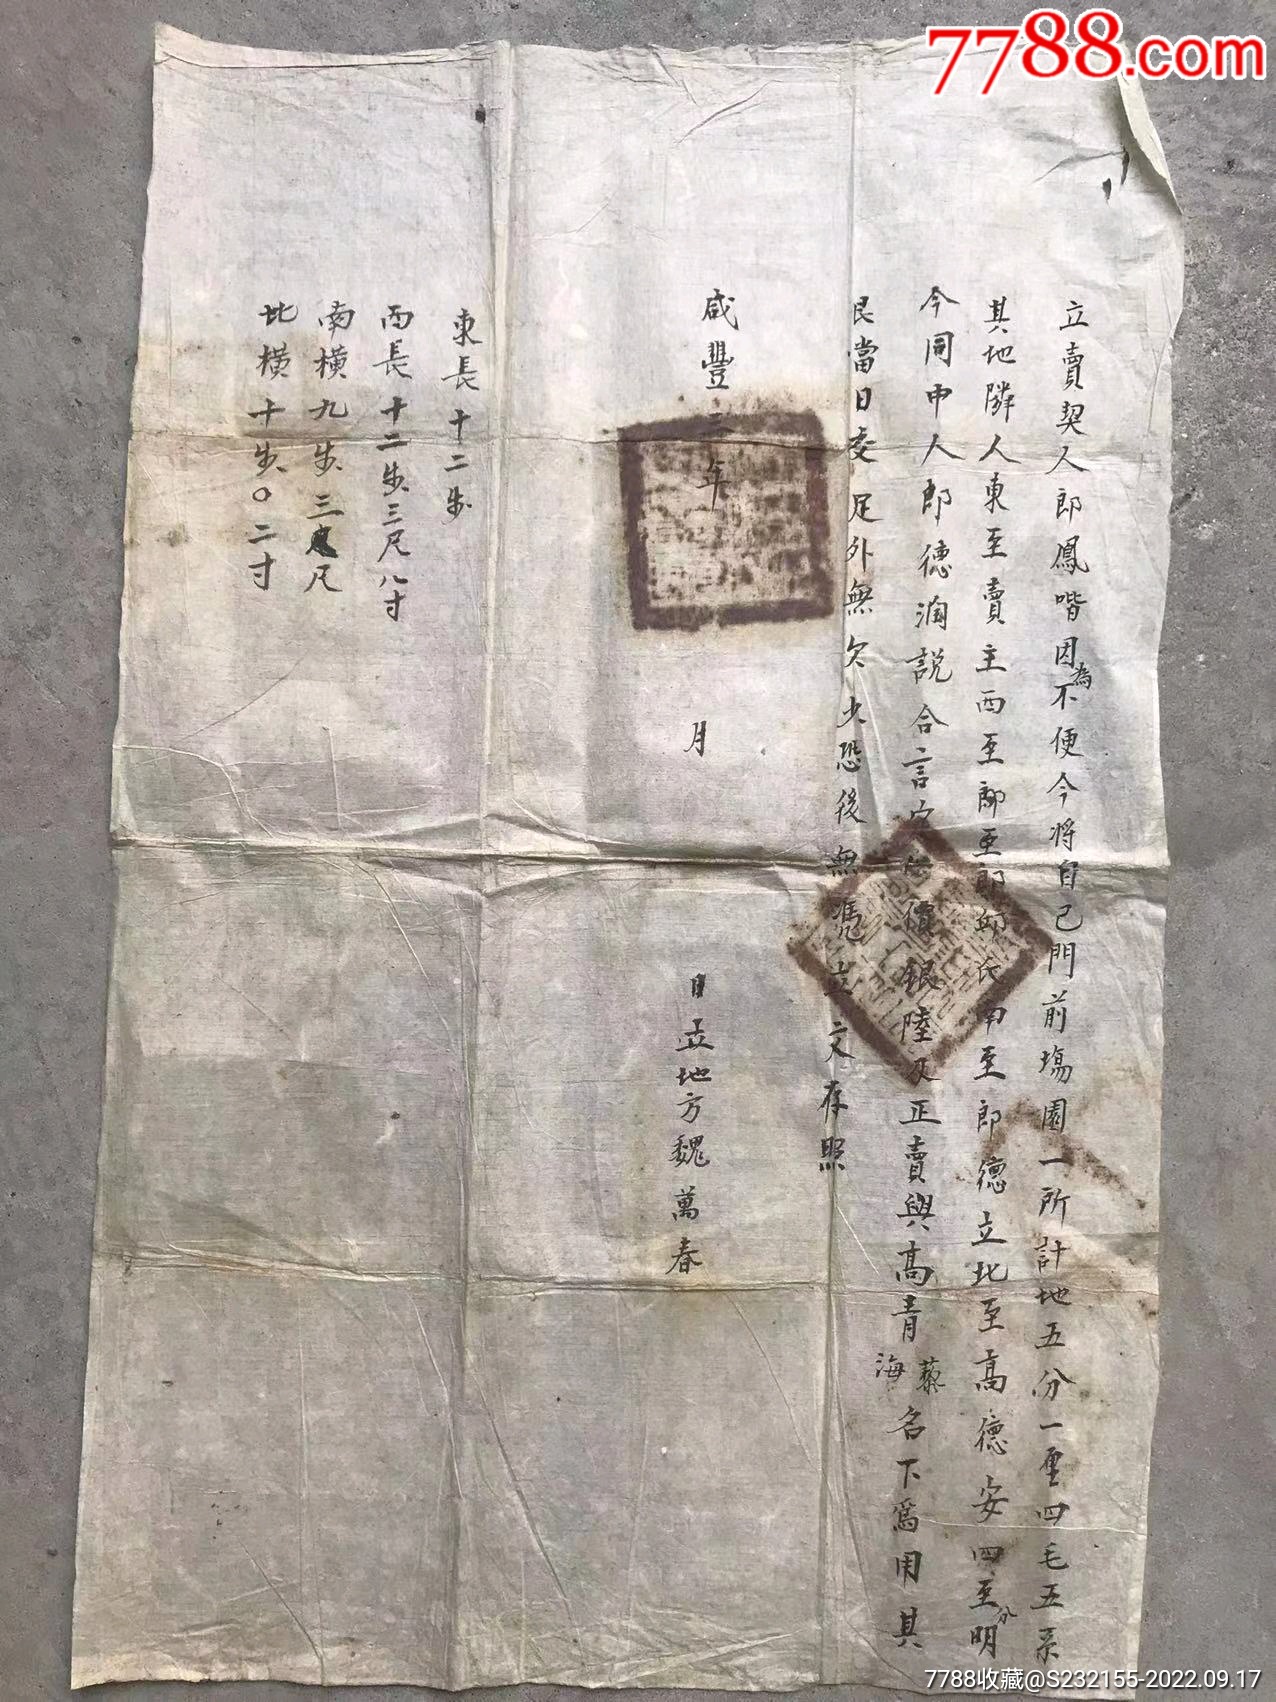 7788.com
立賣契人郎鳳喈因為不便今將自己門前塲園一所計地五分一厘四毛五系
其地隣人東至賣主西至郎至郎邱氏南至郎德立北至高德安四至分明
今同中人郎德潤説合言定價銀陸正賣與高青藜海名下爲用其
艮當日交足外無欠少恐後無憑立文存照
咸豐三年 月 日立地方魏萬春
東長十二步
西長十二步三尺八寸
南横九步三尺
北横十步〇二寸
7788收藏@S232155-2022.09.17